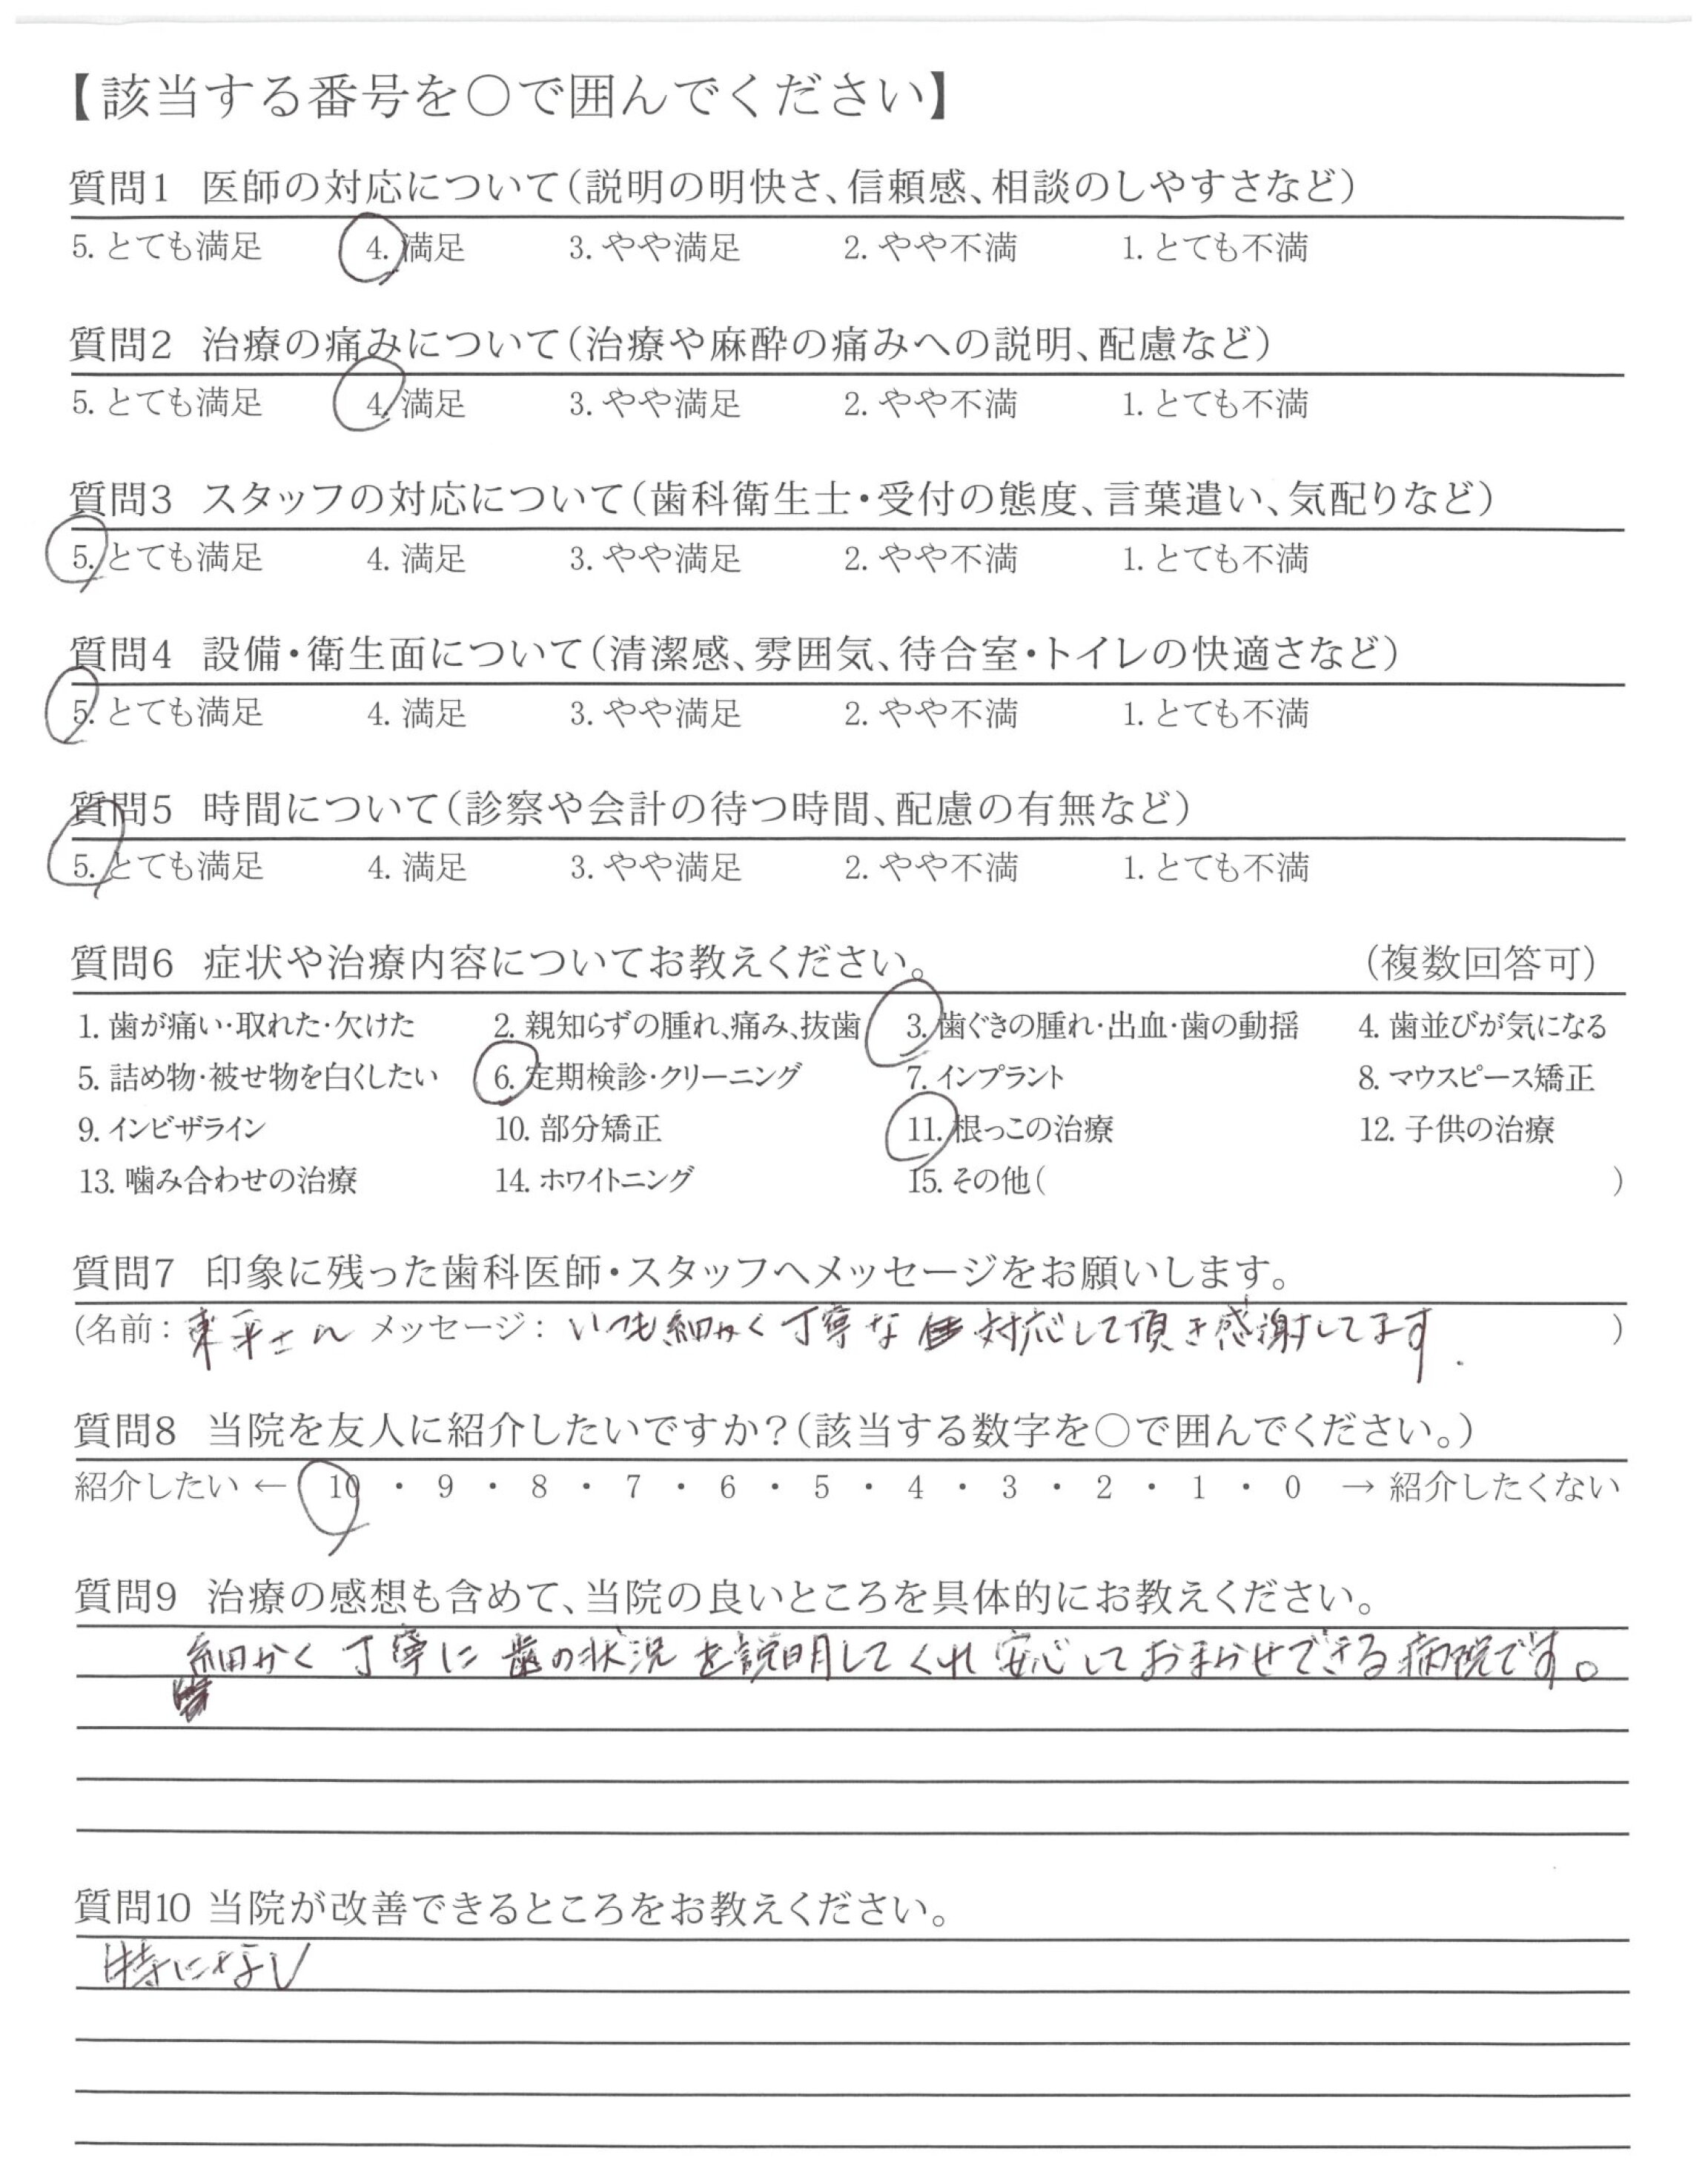 【該当する番号を○で囲んでください】
質問1 医師の対応について(説明の明快さ、信頼感、相談のしやすさなど)
5. とても満足 4. 満足 3. やや満足 2. やや不満 1. とても不満
質問2 治療の痛みについて(治療や麻酔の痛みへの説明、配慮など)
5. とても満足 4. 満足 3. やや満足 2. やや不満 1. とても不満
質問3 スタッフの対応について(歯科衛生士・受付の態度、言葉遣い、気配りなど)
5. とても満足 4. 満足 3. やや満足 2. やや不満 1. とても不満
質問4 設備・衛生面について(清潔感、雰囲気、待合室・トイレの快適さなど)
5. とても満足 4. 満足 3. やや満足 2. やや不満 1. とても不満
質問5 時間について(診察や会計の待つ時間、配慮の有無など)
5. とても満足 4. 満足 3. やや満足 2. やや不満 1. とても不満
質問6 症状や治療内容についてお教えください。 (複数回答可)
1. 歯が痛い・取れた・欠けた 2. 親知らずの腫れ、痛み、抜歯 3. 歯ぐきの腫れ・出血・歯の動揺 4. 歯並びが気になる
5. 詰め物・被せ物を白くしたい 6. 定期検診・クリーニング 7. インプラント 8. マウスピース矯正
9. インビザライン 10. 部分矯正 11. 根っこの治療 12. 子供の治療
13. 噛み合わせの治療 14. ホワイトニング 15. その他( )
質問7 印象に残った歯科医師・スタッフへメッセージをお願いします。
(名前: 東平さん メッセージ: いつも細かく丁寧な対応して頂き感謝してます. )
質問8 当院を友人に紹介したいですか?(該当する数字を○で囲んでください。)
紹介したい ← 10 ・ 9 ・ 8 ・ 7 ・ 6 ・ 5 ・ 4 ・ 3 ・ 2 ・ 1 ・ 0 → 紹介したくない
質問9 治療の感想も含めて、当院の良いところを具体的にお教えください。
細かく丁寧に歯の状況を説明してくれ安心しておまかせできる病院です。
質問10 当院が改善できるところをお教えください。
特になし